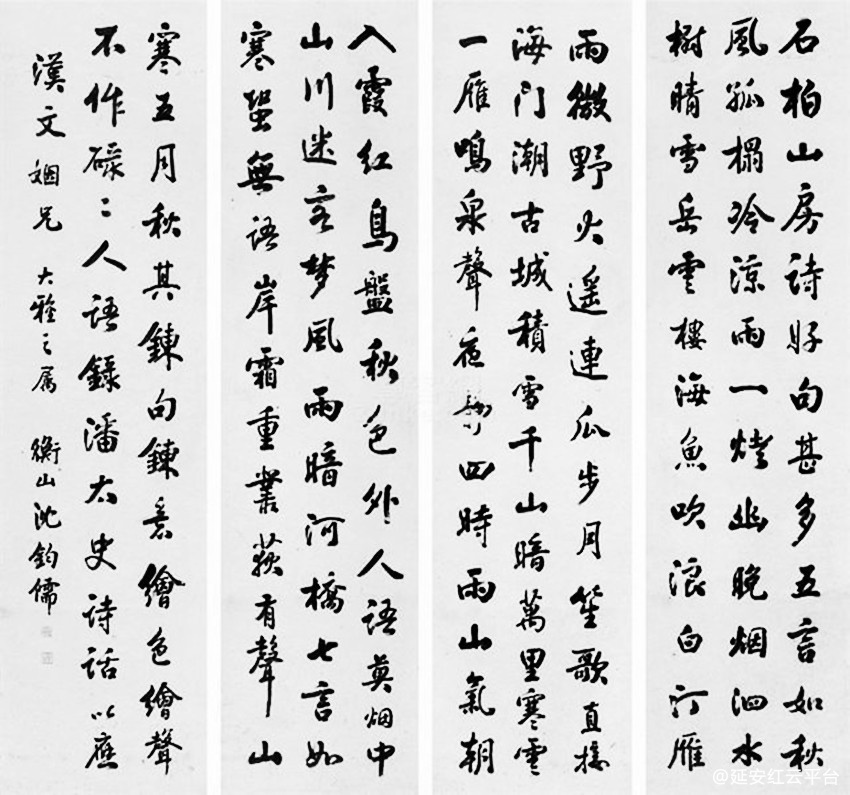 石柏山房诗好句甚多五言如秋
風孤榻冷涼雨一燈幽晚烟泗水
樹晴雪岳雲樓海魚吹浪白汀雁
雨微野火遥連瓜步月笙歌直接
海门潮古城積雪千山暗萬里寒雲
一雁鳴泉聲夜静四時雨山氣朝
入霞红鳥盤秋色外人語莫烟中
山川迷客梦風雨暗河橋七言如
寒蛩無语岸霜重叢荻有聲山
寒五月秋其鍊句鍊意繪色繪聲
不作碌〻人语錄潘太史诗話以應
漢文姻兄 大雅之属 衡山沈鈞儒
@延安红云平台